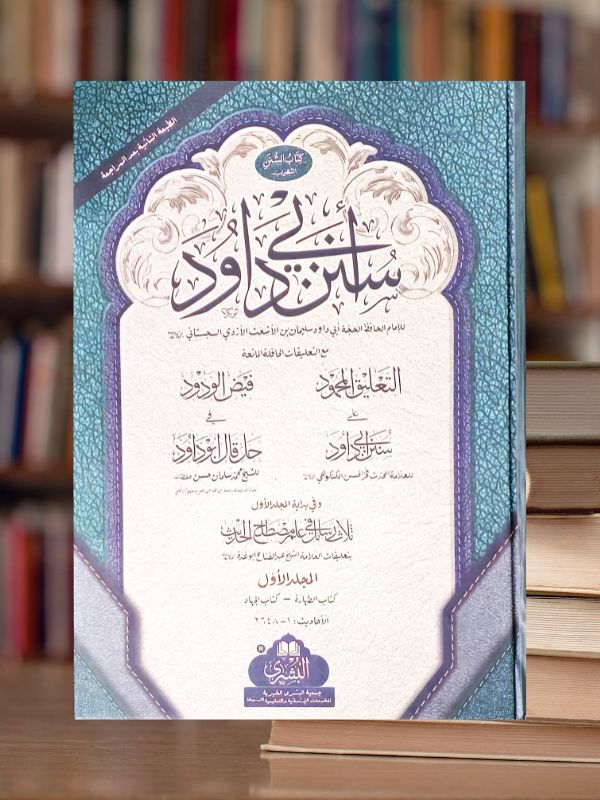 الطبعة الثانية بعد المراجعة
كتاب السنن
سنن أبي داود
للإمام الحافظ الحجة أبي داود سليمان بن الأشعث الأزدي السجستاني
مع التعليقات الحافلة الماتعة
التعليق المحمود
على
سنن أبي داود
للعلامة المحدث فخر الحسن الكنكوهي
فيض الودود
في
حل قال أبو داود
للشيخ محمد سلمان حسن
وفي بداية المجلد الأول
ثلاث رسائل في علم مصطلح الحديث
بتعليقات العلامة الشيخ عبد الفتاح أبو غدة
المجلد الأول
كتاب الطهارة – كتاب الجهاد
الأحاديث: ١-٢٦٤٨
البشرى
جمعية البشرى الخيرية
للخدمات الإنسانية والتعليمية